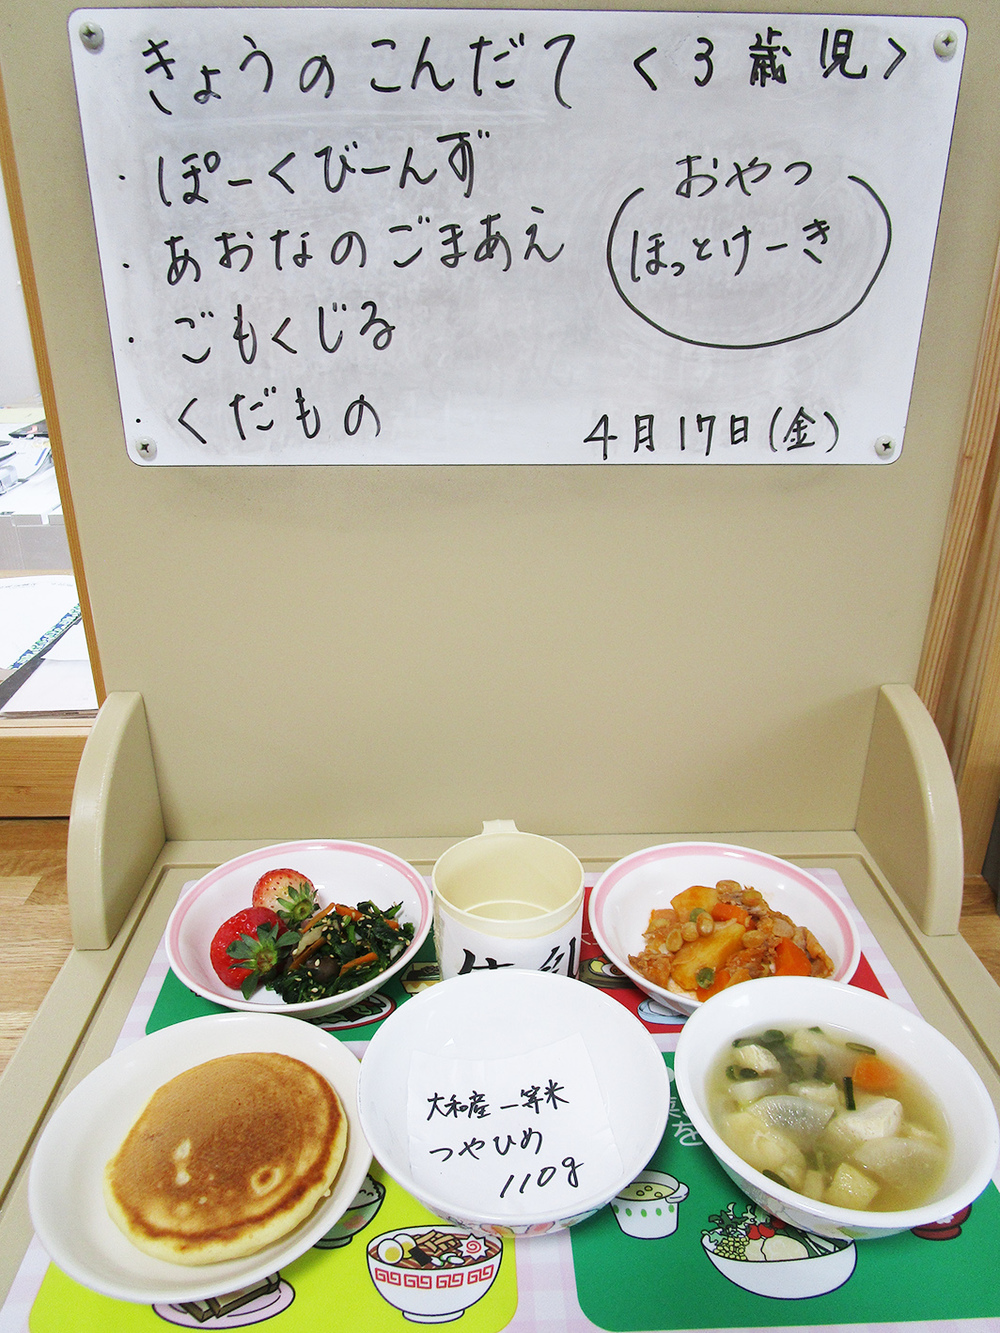 きょうのこんだて <3歳児>
・ぽーくびーんず
・あおなのごまあえ
・ごもくじる
・くだもの
おやつ
ほっとけーき
4月17日(金)
大和産一等米
つやひめ
110g